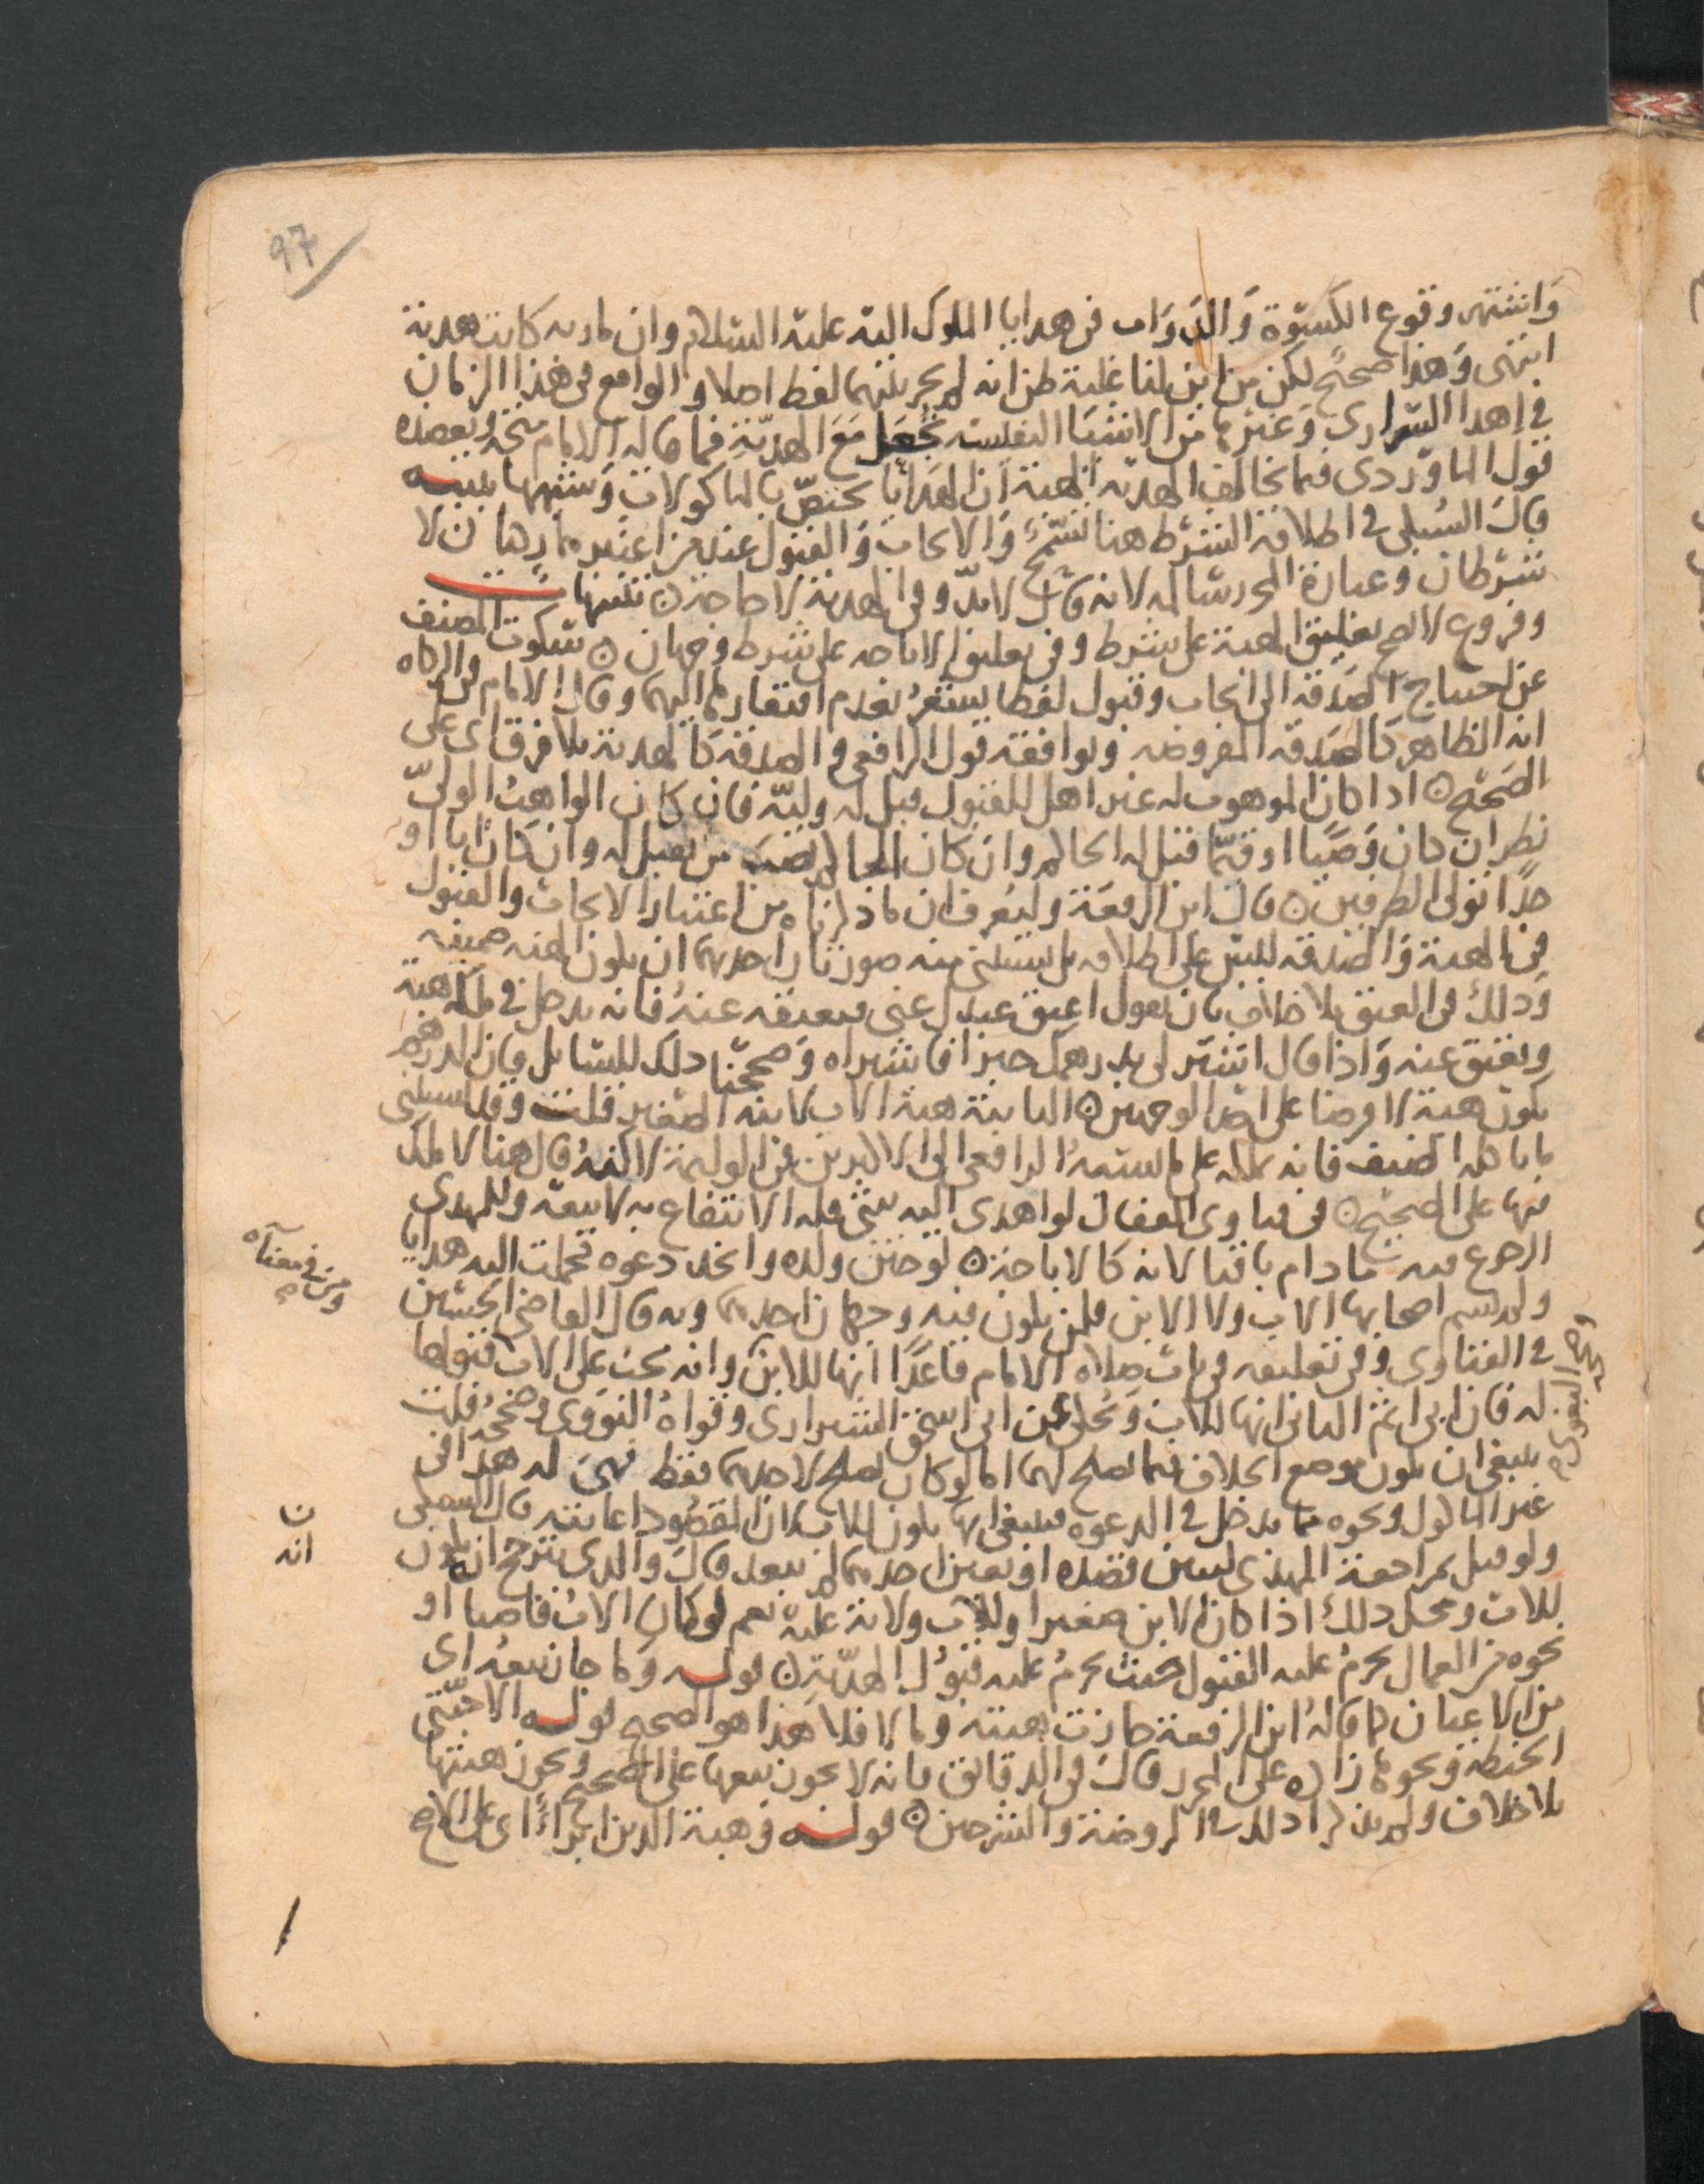 97
واشتهر وقوع الكسوة والدواب في هدايا الملوك اليه عليه السلام وان مارية كانت هدية
انتهى وهذا صحيح لكن من اين لنا غلبة ظن انه لم يجر بينهما لفظ اصلا والواقع في هذا الزمان
في اهداء السراري وغيرها من الاشياء النفيسة مع الهدية فما قاله الامام متجه ويعضده
قول الماوردي فيما تخالف الهدية الهبة ان الهدايا تختص بالماكولات وشبهها تنبيه
قال السبكي في اطلاقه الشرط هنا تسمح والايجاب والقبول عند من اعتبرهما ركنان لا
شرطان وعبارة المحرر سالمة لانه قال لا بد وفي الهدية لا حاجة تنبيهات
وفروع لا يصح تعليق الهبة على شرط وفي تعليق الاباحة على شرط وجهان سكوت المصنف
عن احتياج الصدقة الى ايجاب وقبول لفظا يشعر بعدم افتقارها اليهما وقال الامام في الزكاة
انه الظاهر كالصدقة المفروضة ويوافقه قول الرافعي والصدقة كالهدية بلا فرق اي على
الصحيح اذا كان الموهوب له غير اهل للقبول قبل له وليه فان كان الواهب الولي
نظر ان كان وصيا او قيما قبل له الحاكم وان كان الحاكم نصب من يقبل له وان كان ابا او
جدا تولى الطرفين قال ابن الرفعة وليعرف ان ما ذكرناه من اعتبار الايجاب والقبول
في الهبة والصدقة ليس على اطلاقه بل يستثنى منه صورتان احديهما ان يكون الهبة ضمنية
وذلك في العتق بلا خلاف بان يقول اعتق عبدك عني فيعتقه عنه فانه يدخل في ملكه هبة
ويعتق عنه واذا قال اشتر لي بدرهمك خبزا فاشتراه وصححنا ذلك للسائل فان الدرهم
يكون هبة لا قرضا على احد الوجهين الثانية هبة الاب لابنه الصغير قلت وقد يستثنى
ما ياكله الضيف فانه يملكه على ما نسبه الرافعي الى الاكثرين في الوليمة لكنه قال هنا لا ملك
فيها على الصحيح في فتاوى القفال لو اهدى اليه شيئ فله الانتفاع به لا بيعه وللمهدي
الرجوع فيه ما دام باقيا لانه كالاباحة لو ختن ولده واتخذ دعوة فحملت اليه هدايا
ولم يسم اصحابها الاب ولا الابن فلمن يكون فيه وجهان احدهما وبه قال القاضي الحسين
في الفتاوى وفي تعليقه في باب صلاة الامام قاعدا انها للابن وانه يجب على الاب قبولها
له فان ابى اثم الثاني انها للاب وحكي عن ابي اسحق الشيرازي وقواه النووي وصححه قلت
ينبغي ان يكون موضع الخلاف فيما يصلح لهما اما لو كان يصلح لاحدهما فقط فهي له هذا في
غير الماكول ونحوه مما يدخل في الدعوة فينبغي انها يكون للاب لان المقصود اعانته قال السبكي
ولو قيل بمراجعة المهدي لتبيين قصده او تعين احدهما لم يبعد قال والذي يترجح انه يكون
للاب ومحل ذلك اذا كان الابن صغيرا وللاب ولاية عليه نعم لو كان الاب قاضيا او
نحوه من العمال يحرم عليه القبول حيث يحرم عليه قبول الهدية قوله وما جاز بيعه اي
من الاعيان كما قاله ابن الرفعة جازت هبته وما لا فلا هذا هو الصحيح قوله الا حبتي
الحنطة ونحوهما زاده على المحرر قال في الدقائق فانه لا يجوز بيعها على الصحيح ويجوز هبتها
بلا خلاف ولم يذكرا ذلك في الروضة والشرحين قوله وهبة الدين ابراء اي على الاصح
ن
انه